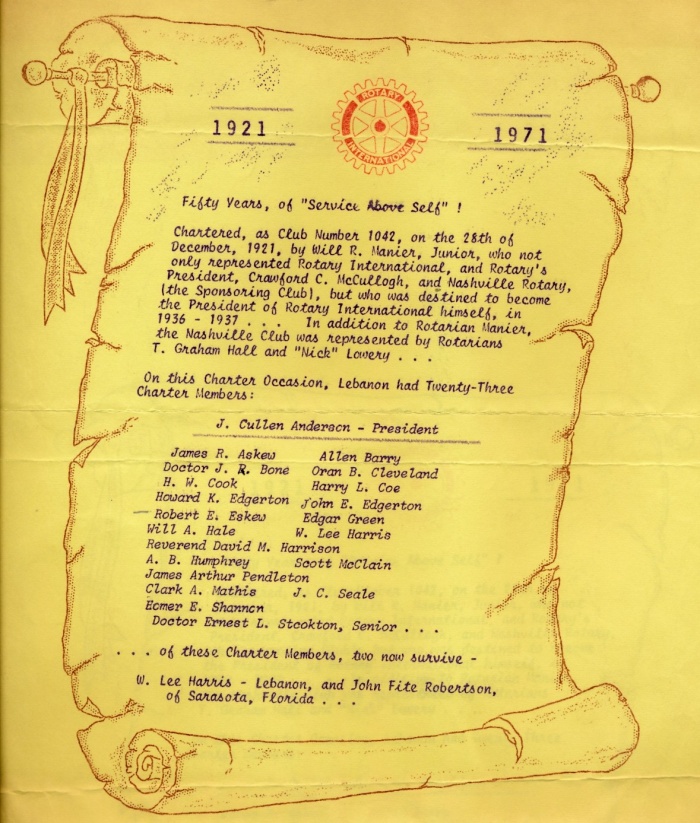 1921
ROTARY
INTERNATIONAL
1971
Fifty Years, of "Service Above Self" !
Chartered, as Club Number 1042, on the 28th of
December, 1921, by Will R. Manier, Junior, who not
only represented Rotary International, and Rotary's
President, Crawford C. McCullogh, and Nashville Rotary,
(the Sponsoring Club), but who was destined to become
the President of Rotary International himself, in
1936 - 1937 . . . In addition to Rotarian Manier,
the Nashville Club was represented by Rotarians
T. Graham Hall and "Nick" Lowery . . .
On this Charter Occasion, Lebanon had Twenty-Three
Charter Members:
J. Cullen Anderson - President
James R. Askew Allen Barry
Doctor J. R. Bone Oran B. Cleveland
H. W. Cook Harry L. Coe
Howard K. Edgerton John E. Edgerton
Robert E. Eskew Edgar Green
Will A. Hale W. Lee Harris
Reverend David M. Harrison
A. B. Humphrey Scott McClain
James Arthur Pendleton
Clark A. Mathis J. C. Seale
Homer E. Shannon
Doctor Ernest L. Stockton, Senior . . .
. . . of these Charter Members, two now survive -
W. Lee Harris - Lebanon, and John Fite Robertson,
of Sarasota, Florida . . .